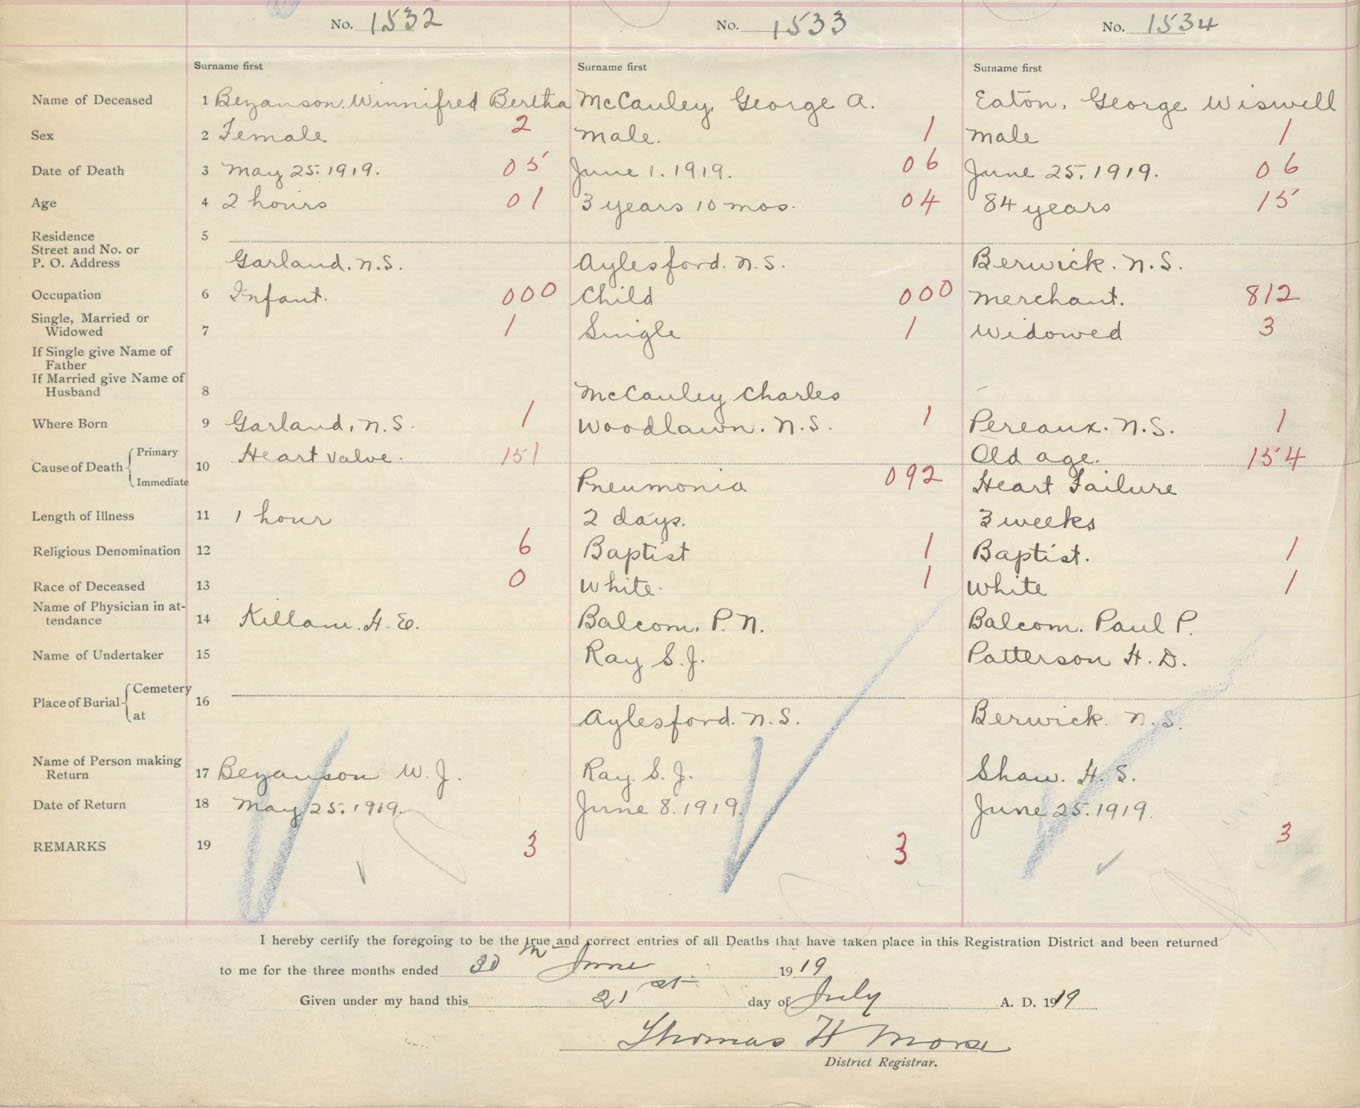 No. 1532 No. 1533 No. 1534
Surname first Surname first Surname first
Name of Deceased 1 Bezanson, Winnifred Bertha McCauley, George A. Eaton, George Wiswell
Sex 2 Female 2 Male. 1 Male 1
Date of Death 3 May 25. 1919. 05 June 1. 1919. 06 June 25. 1919. 06
Age 4 2 hours 01 3 years 10 mos. 04 84 years 15
Residence 5
Street and No. or
P. O. Address Garland. N.S. Aylesford. N.S. Berwick. N.S.
Occupation 6 Infant. 000 Child 000 Merchant. 812
Single, Married or
Widowed 7 1 Single 1 Widowed 3
If Single give Name of
Father
If Married give Name of
Husband 8 McCauley Charles
Where Born 9 Garland, N.S. 1 Woodlawn. N.S. 1 Pereaux. N.S. 1
Cause of Death Primary 10 Heart Valve. 151 Old age. 154
Immediate Pneumonia 092 Heart Failure
Length of Illness 11 1 hour 2 days. 3 weeks
Religious Denomination 12 6 Baptist 1 Baptist. 1
Race of Deceased 13 0 White. 1 White 1
Name of Physician in at-
tendance 14 Killam. H. E. Balcom. P. N. Balcom. Paul P.
Name of Undertaker 15 Ray S. J. Patterson H. D.
Place of Burial Cemetery 16
at Aylesford. N.S. Berwick. N.S.
Name of Person making
Return 17 Bezanson W. J. Ray. S. J. Shaw. H. S.
Date of Return 18 May 25. 1919. June 8. 1919. June 25. 1919.
REMARKS 19 3 3 3
I hereby certify the foregoing to be the true and correct entries of all Deaths that have taken place in this Registration District and been returned
to me for the three months ended 30th June 1919
Given under my hand this 21st day of July A. D. 1919
Thomas H Morse
District Registrar.